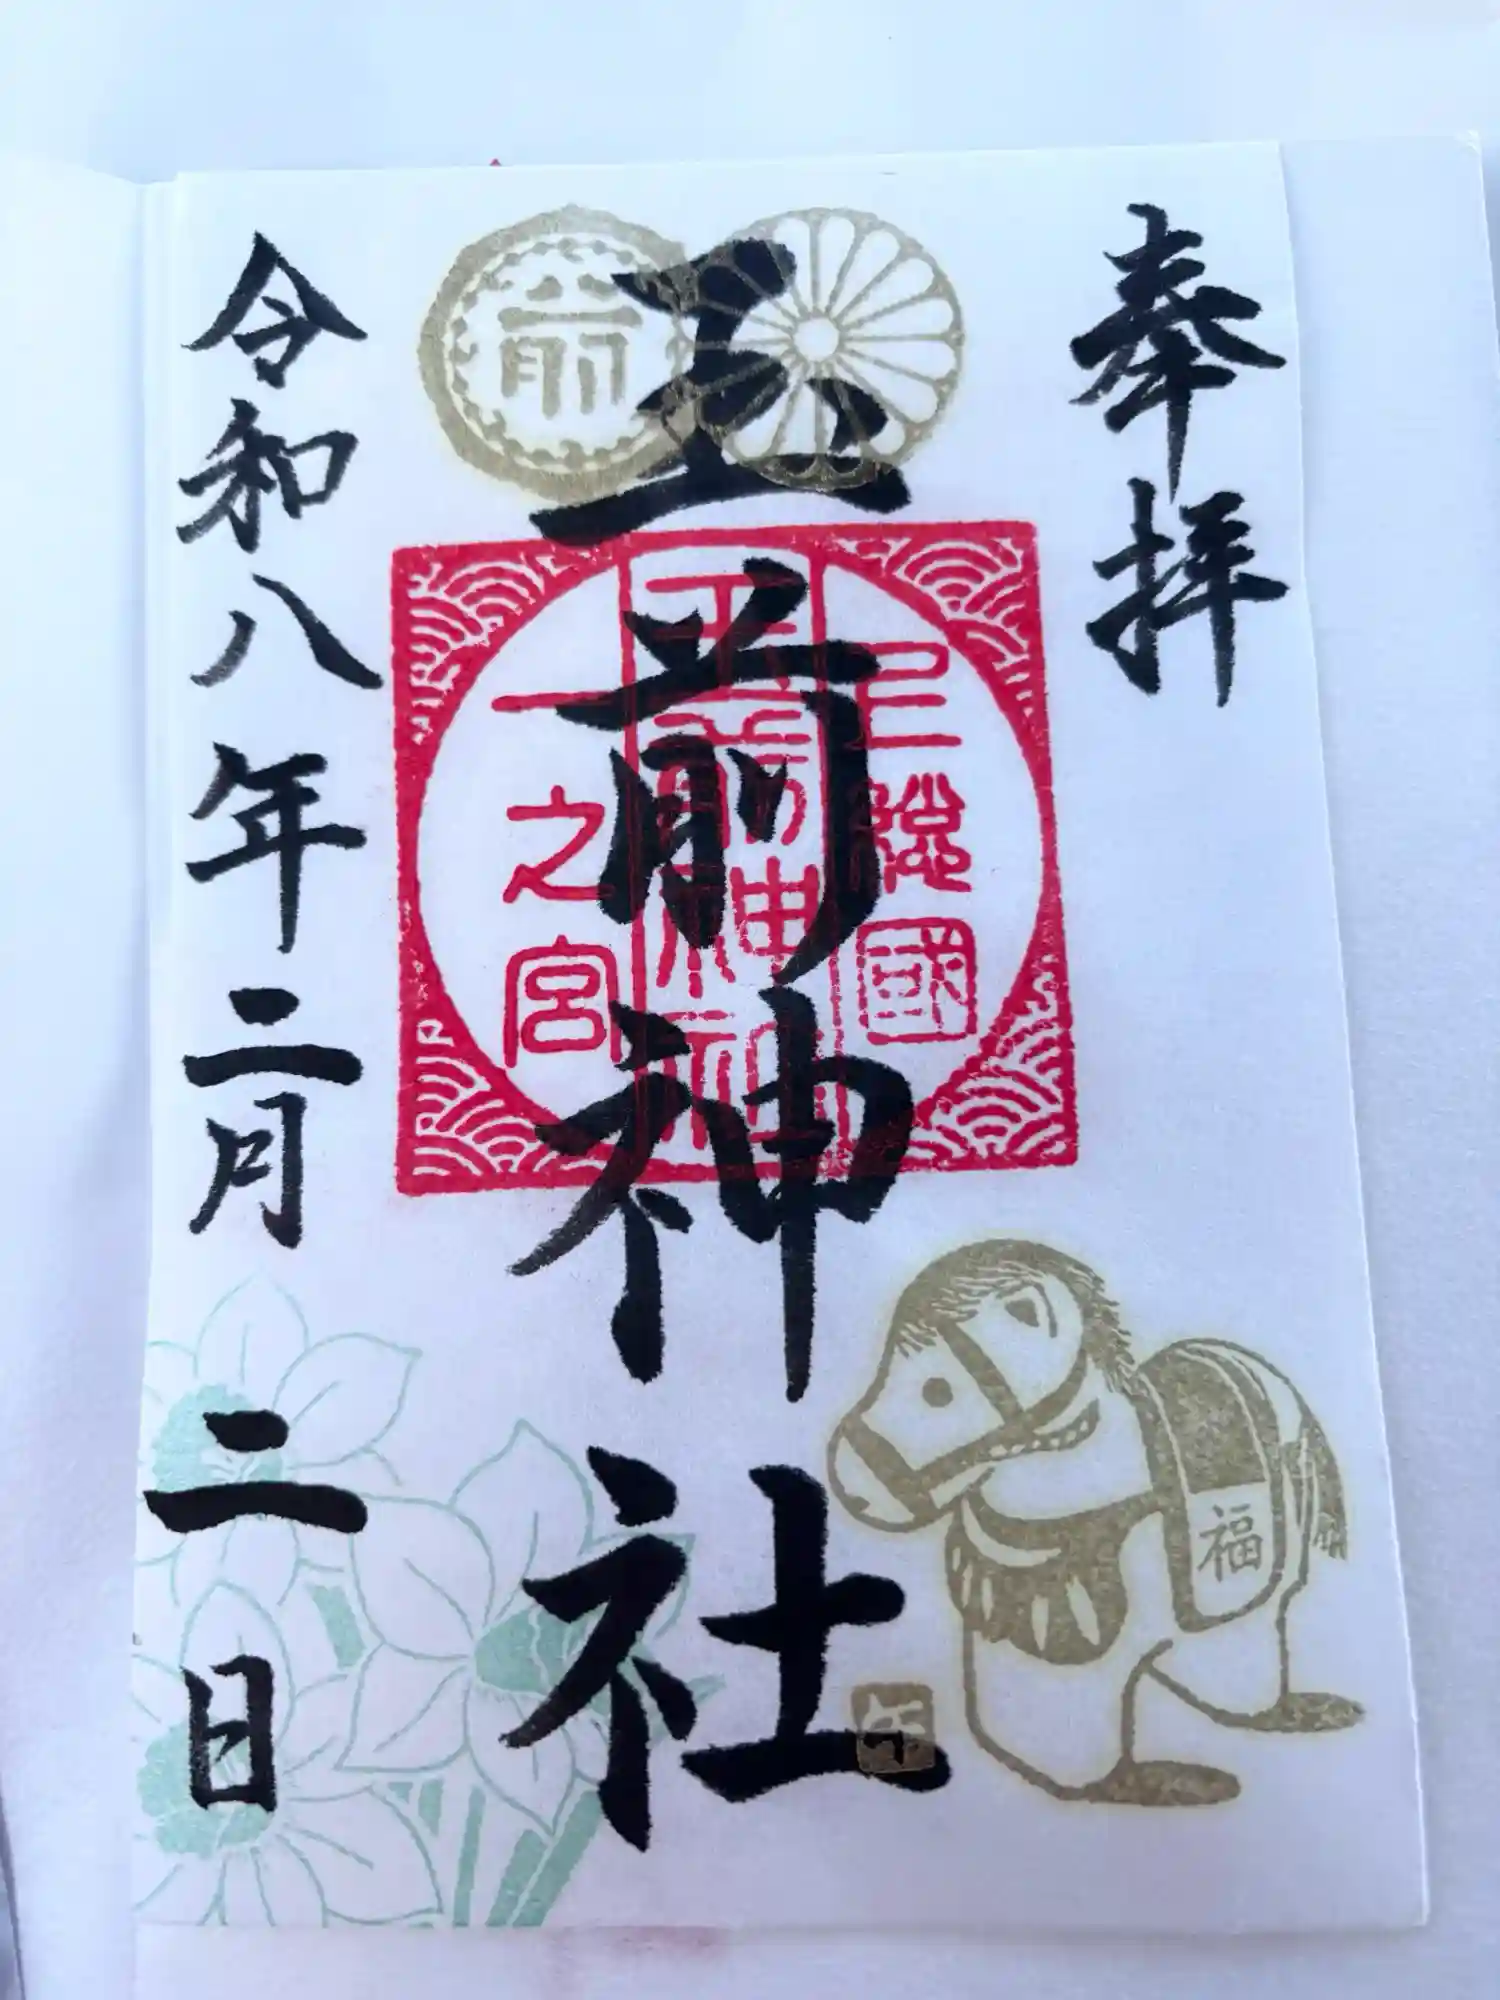 奉拝
上総國
玉前神社
一之宮
前
玉前神社
福
午
令和八年二月二日